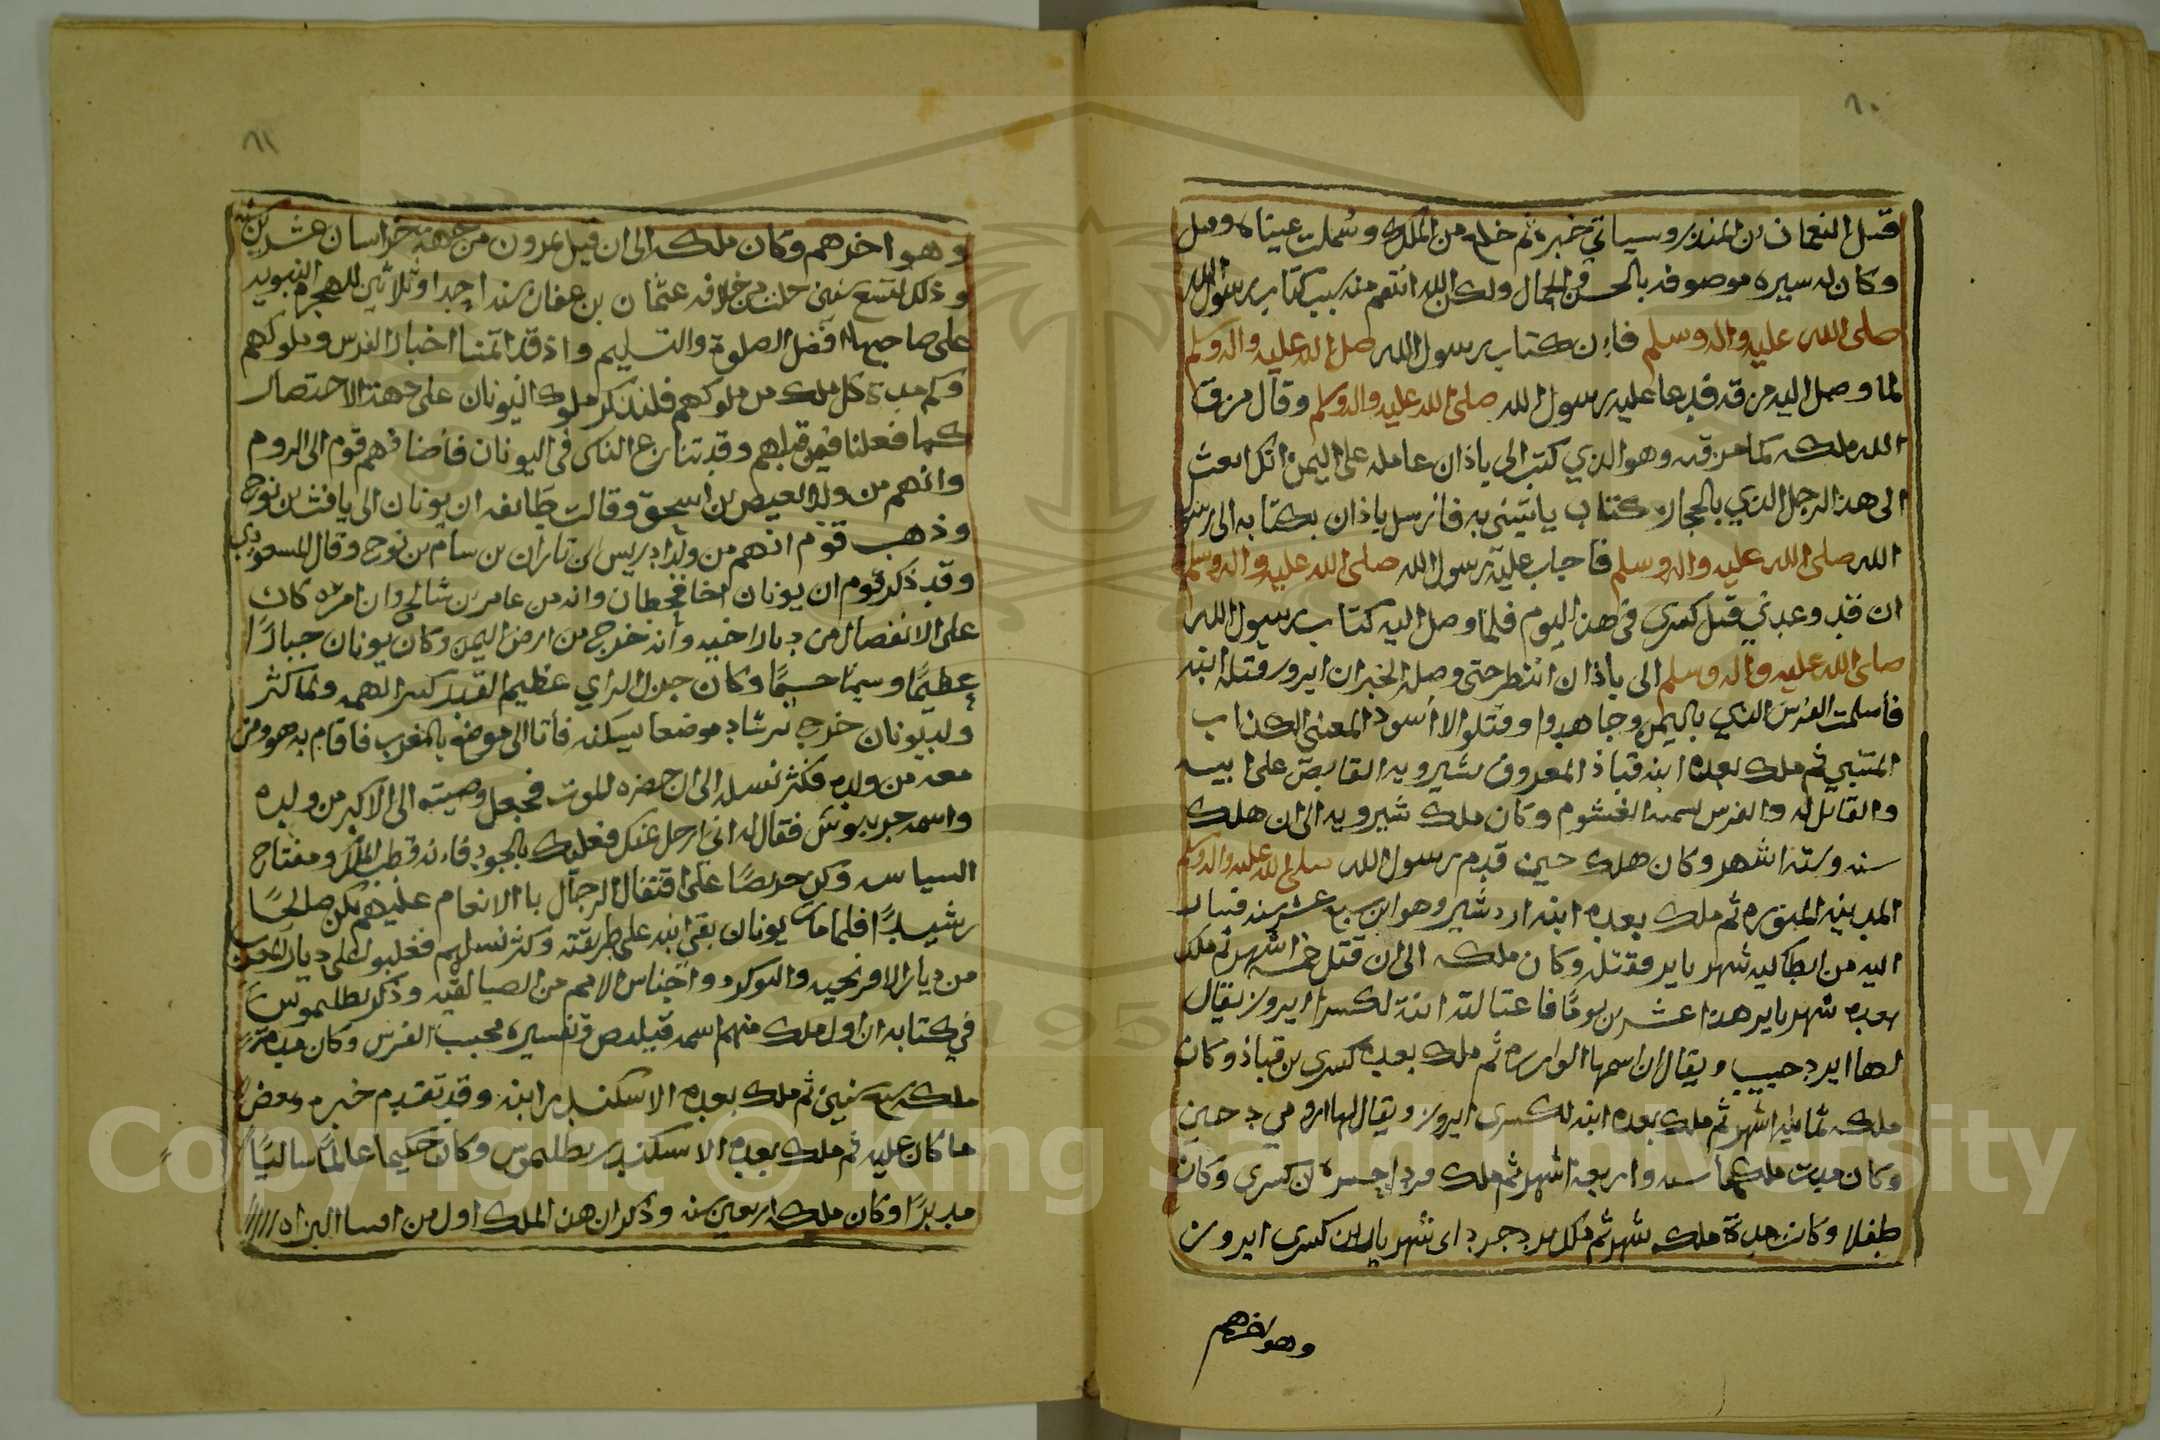 ٦٠
قتل النعمان بن المنذر وسياتي خبره ثم خلع من الملك وسملت عيناه وقتل
وكان له سيره موصوفه بالحسن في الجمال ولكن الله انتقم منه بسبب كتاب رسول الله
صلى الله عليه واله وسلم فاءن كتاب رسول الله صلى الله عليه واله وسلم
لما وصل اليه مزقه فدعا عليه رسول الله صلى الله عليه واله وسلم وقال مزق
الله ملكه كما مزقه وهو الذي كتب الى باذان عامله على اليمن انك ابعث
الى هذا الرجل الذي بالحجاز كتاب ياتيني به فارسل باذان بكتابه الى رسول
الله صلى الله عليه واله وسلم فاجاب عليه رسول الله صلى الله عليه واله وسلم
ان قد وعدني قتل كسرى في هذا اليوم فلما وصل اليه كتاب رسول الله
صلى الله عليه واله وسلم الى باذان انتظر حتى وصل الخبر ان ابرويز قتله ابنه
فأسلمت الفرس الذي باليمن وجاهدوا وقتلوا الاأسود المعنى الكذاب
المتنبي ثم ملك بعده ابنه قباذ المعروف بشيرويه القابض على ابيه
والقاتل له والفرس تسمه الغشوم وكان ملك شيرويه الى ان هلك
سنه وسته اشهر وكان هلك حين قدم رسول الله صلى الله عليه واله وسلم
المدينه المنوره ثم ملك بعده ابنه اردشير وهو ابن سبع عشر سنه فسار
اليه من انطاكيه شهريار فقتله وكان ملكه الى ان قتل خمسه اشهر ثم ملك
بعده شهريار هذا عشرين يومًا فاغتالته ابنة لكسرا ابرويز يقال
لها ايرد حبيب ويقال ان اسمها الوارره ثم ملك بعده كسرى بن قباذ وكان
ملكه ثمانيه اشهر ثم ملك بعده ابنه لكسرى ابرويز ويقال لها ارومي دحين
وكان مدت ملكها سنه واربعة اشهر ثم ملك فرداحسره بن كسرى وكان
طفلا وكانت مدة ملكه شهر ثم ملك يردجرد اى شهريار بن كسرى ابرويز
وهو اخرهم
٦١
وهو اخرهم وكان ملكه الى ان قتل بمرون من جهة خراسان عشرين سنه
وذلك لتسع سنين خلت من خلافه عثمان بن عفان سنه احدا وثلاثين للهجره النبويه
على صاحبها افضل الصلوة والتسليم واذ قد اتممنا اخبار الفرس وملوكهم
وكم مدة كل ملك من ملوكهم فلنذكر ملوك اليونان على جهة الاختصار
كما فعلنا فيمن قبلهم وقد تنازع الناس في اليونان فأضافهم قوم الى الروم
وانهم من ولد العيص بن اسحق وقالت طائفه ان يونان الى يافث بن نوح
وذهب قوم انهم من ولد ادريس بن ناران بن سام بن نوح وقال المسعودي
وقد ذكر قوم ان يونان اخا قحطان وانه من عابر بن شالخ وان امره كان
على الانفصال من ديار اخيه وأنه خرج من ارض اليمن وكان يونان جبارًا
عظيمًا وسيمًا جسيمًا وكان جزل الراي عظيم القدر كبير الهمه ولما كثر
ولد يونان خرج يرتاد موضعا يسكنه فأتا الى موضع بالمغرب فاقام به هو ومن
معه من ولده فكثر نسله الى ان حضره الموت فجعل وصيته الى الاكبر من ولده
واسمه حربيوش فقال له اني ارحل عنك فعليك بالجود فاءنه قطب الملك ومفتاح
السياسه وكن حريصًا على اقتفال الرجال باالانعام عليهم تكن صالحًا
رشيدًا فلما مات يونان بقي ابنه على طريقته وكثر نسلهم فغلبو على ديار المغرب
من ديار الافرنجيه والنوكرد واجناس الامم من الصيالقيه وذكر بطليموس
في كتابه ان اول ملك منهم اسمه فيلبص وتفسيره محبب الفرس وكان مدة
ملكه سبع سنين ثم ملك بعده الاسكندر ابنه وقد تقدم خبره وبعض
ما كان عليه ثم ملك بعده الاسكندر بطليموس وكان حكيما عالمًا سائسًا
مدبرًا وكان ملكه اربعين سنه وذكر ان هذا الملك اول من اقتنا البزاه